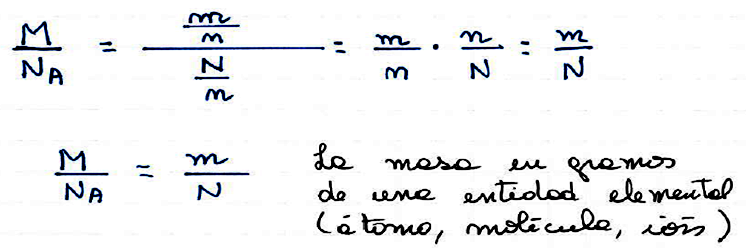 M/N_A = (m/n)/(N/n) = m/n · n/N = m/N
M/N_A = m/N
La masa en gramos
de una entidad elemental
(átomo, molécula, ión)